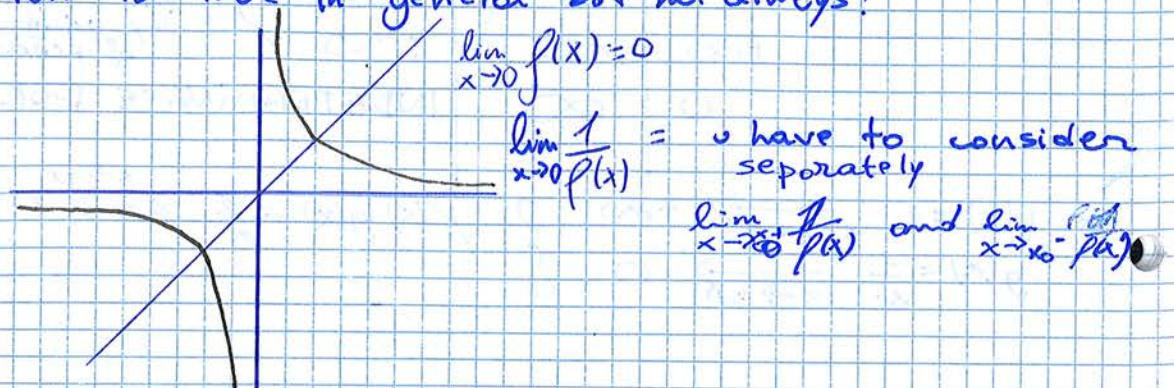 in general but not always!
lim x→0 f(x) = 0
lim x→0 1/f(x) = u have to consider
separately
lim x→x0+ 1/f(x) and lim x→x0- f(x)